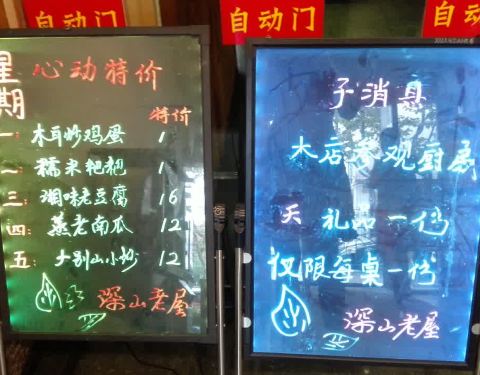 自动门
自动门
自动门
星期
心动特价
特价
一: 木耳炒鸡蛋 1
二: 糯米粑粑 1
三: 湘味老豆腐 16
四: 蒸老南瓜 12
五: 大别山小炒 12
深山老屋
子消具
本店参观厨房
天 礼品一份
仅限每桌一份
深山老屋